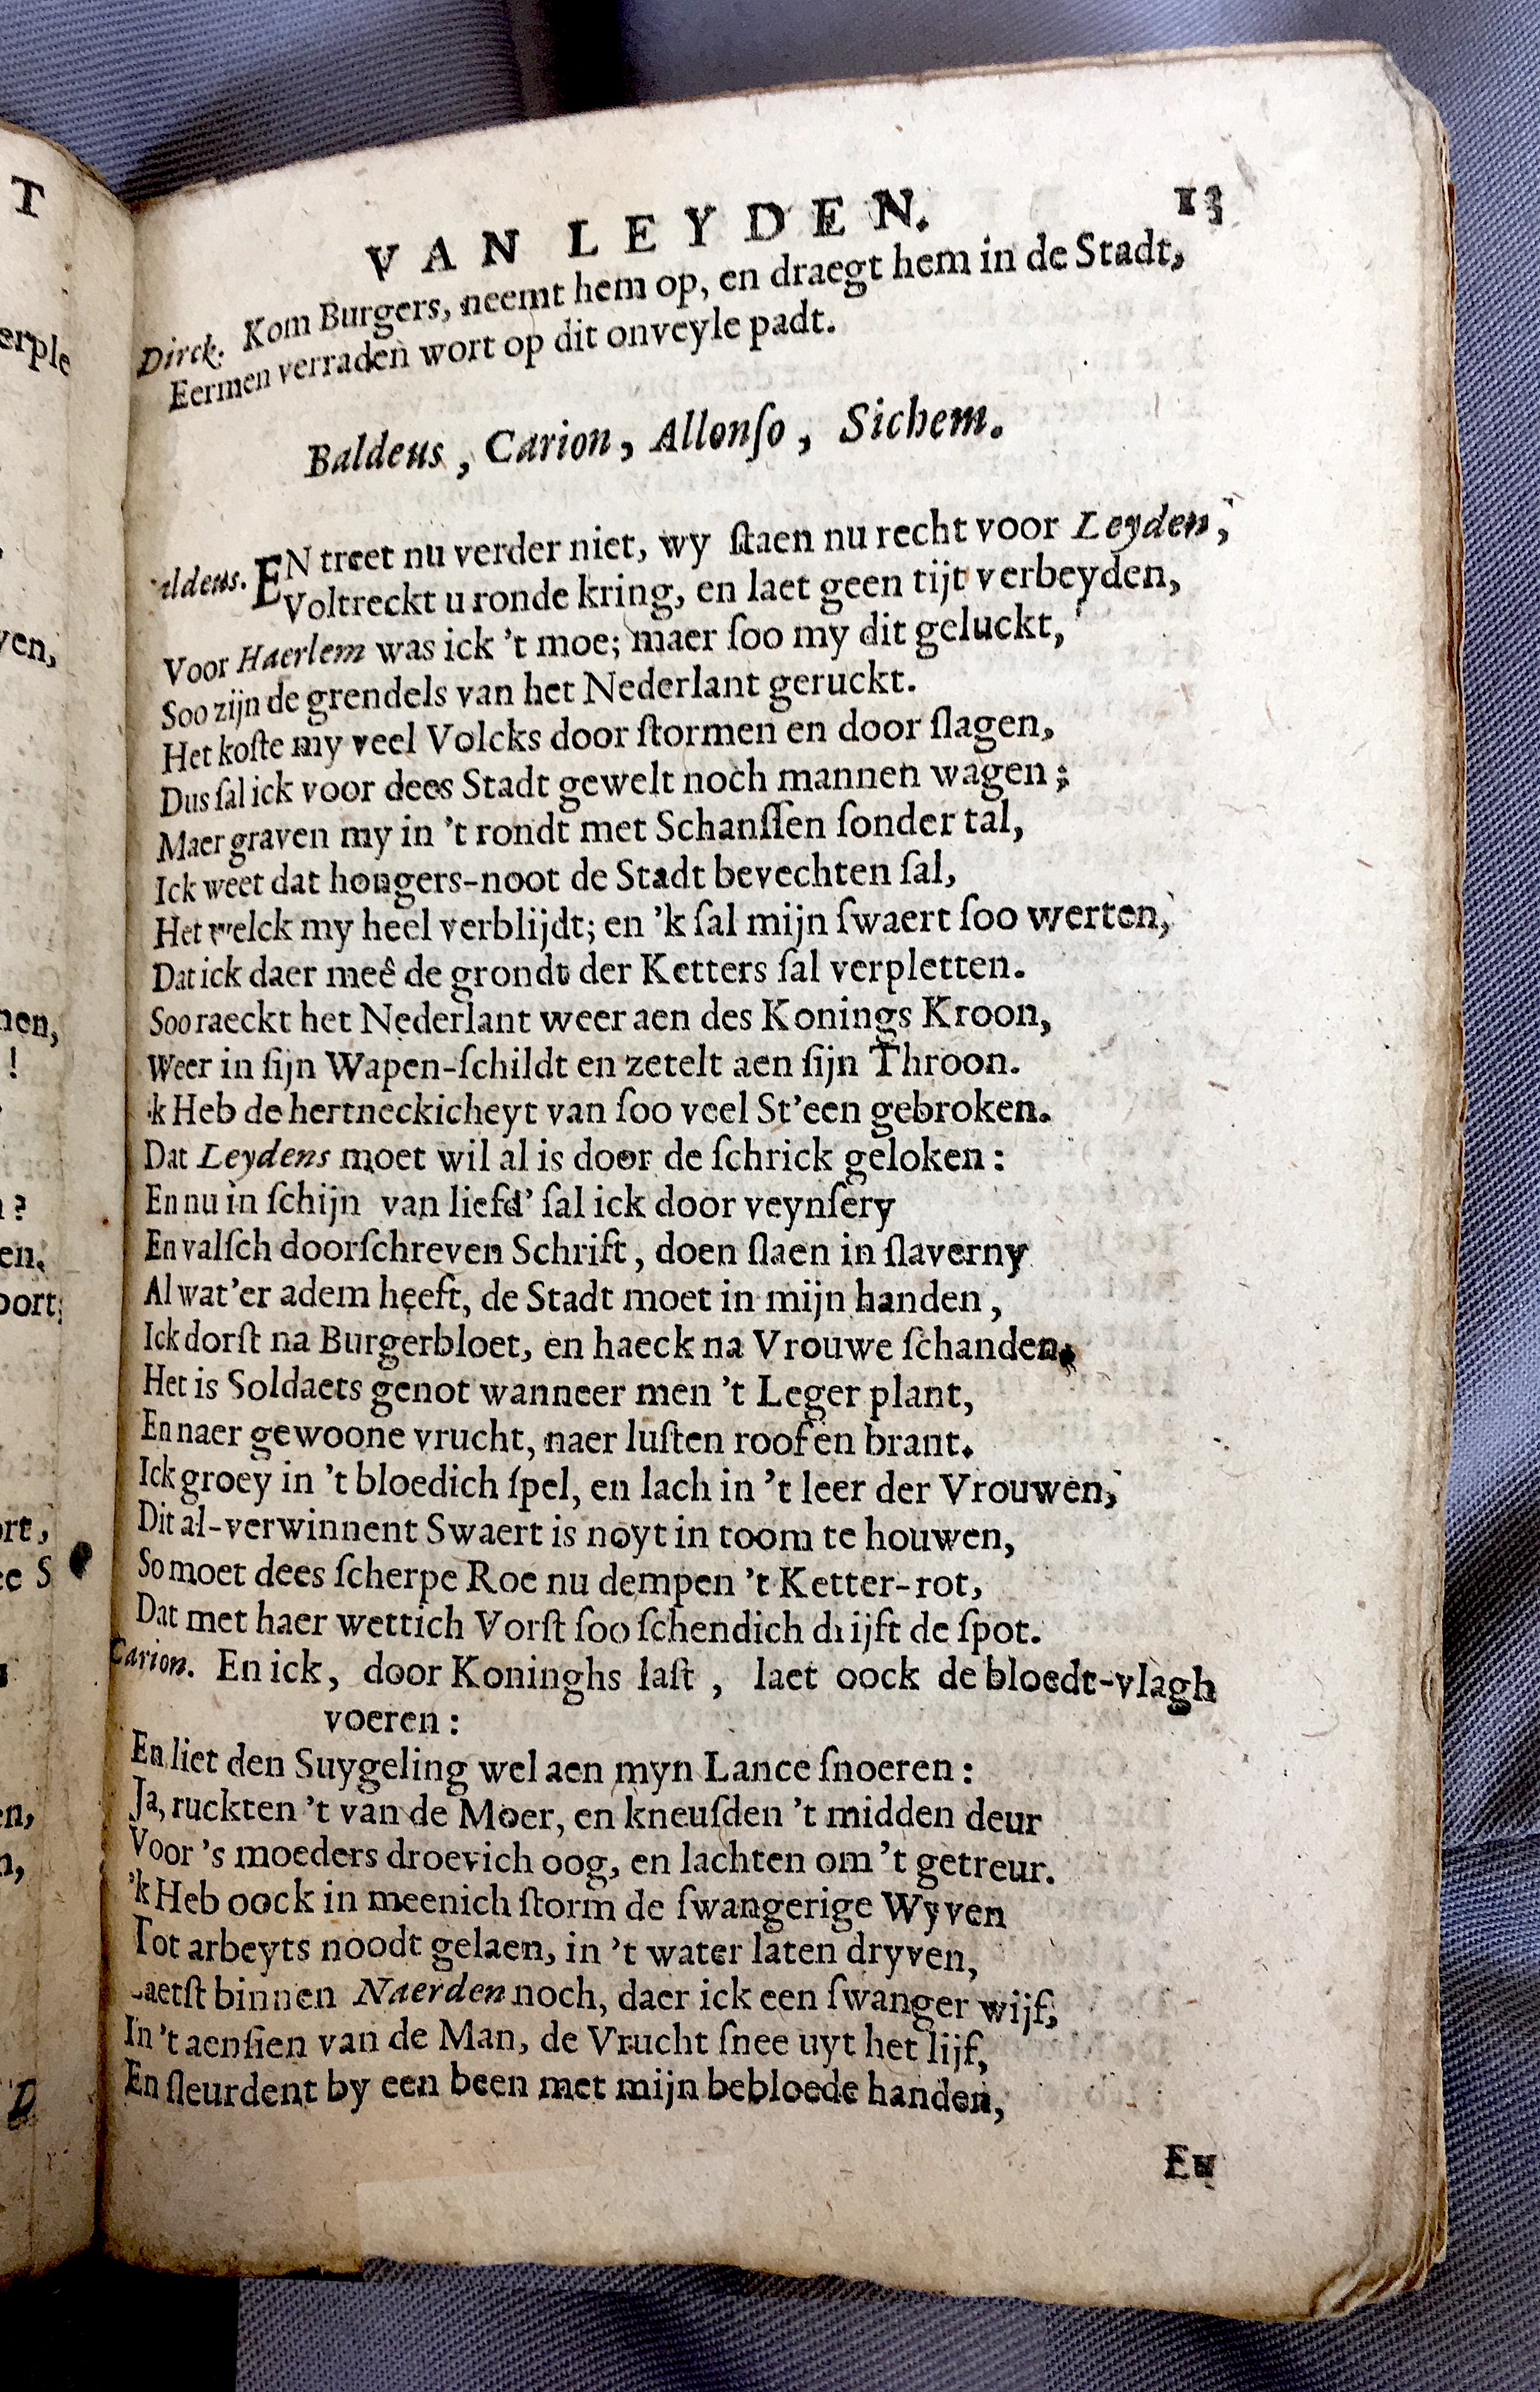 VAN LEYDEN. 13
Dirck. Kom Burgers, neemt hem op, en draegt hem in de Stadt,
Eermen verraden wort op dit onveyle padt.
Baldeus, Carion, Allonſo, Sichem.
aldeus. EN treet nu verder niet, wy ſtaen nu recht voor Leyden,
Voltreckt u ronde kring, en laet geen tijt verbeyden,
Voor Haerlem was ick 't moe; maer ſoo my dit geluckt,
Soo zijn de grendels van het Nederlant geruckt.
Het koſte my veel Volcks door ſtormen en door ſlagen,
Dus ſal ick voor dees Stadt gewelt noch mannen wagen;
Maer graven my in 't rondt met Schanſſen ſonder tal,
Ick weet dat hongers-noot de Stadt bevechten ſal,
Het welck my heel verblijdt; en 'k ſal mijn ſwaert ſoo werten,
Dat ick daer meê de grondt der Ketters ſal verpletten.
Soo raeckt het Nederlant weer aen des Konings Kroon,
Weer in ſijn Wapen-ſchildt en zetelt aen ſijn Throon.
'k Heb de hertneckicheyt van ſoo veel St'een gebroken.
Dat Leydens moet wil al is door de ſchrick geloken:
En nu in ſchijn van liefd' ſal ick door veynſery
En valſch doorſchreven Schrift, doen ſlaen in ſlaverny
Al wat'er adem heeft, de Stadt moet in mijn handen,
Ick dorſt na Burgerbloet, en haeck na Vrouwe ſchanden.
Het is Soldaets genot wanneer men 't Leger plant,
En naer gewoone vrucht, naer luſten roof en brant.
Ick groey in 't bloedich ſpel, en lach in 't leer der Vrouwen,
Dit al-verwinnent Swaert is noyt in toom te houwen,
So moet dees ſcherpe Roe nu dempen 't Ketter-rot,
Dat met haer wettich Vorſt ſoo ſchendich drijft de ſpot.
Carion. En ick, door Koninghs laſt, laet oock de bloedt-vlagh
voeren:
En liet den Suygeling wel aen myn Lance ſnoeren:
Ja, ruckten 't van de Moer, en kneuſden 't midden deur
Voor 's moeders droevich oog, en lachten om 't getreur.
'k Heb oock in meenich ſtorm de ſwangerige Wyven
Tot arbeyts noodt gelaen, in 't water laten dryven,
Laetſt binnen Naerden noch, daer ick een ſwanger wijf,
In 't aenſien van de Man, de Vrucht ſnee uyt het lijf,
En ſleurdent by een been met mijn bebloede handen,
En